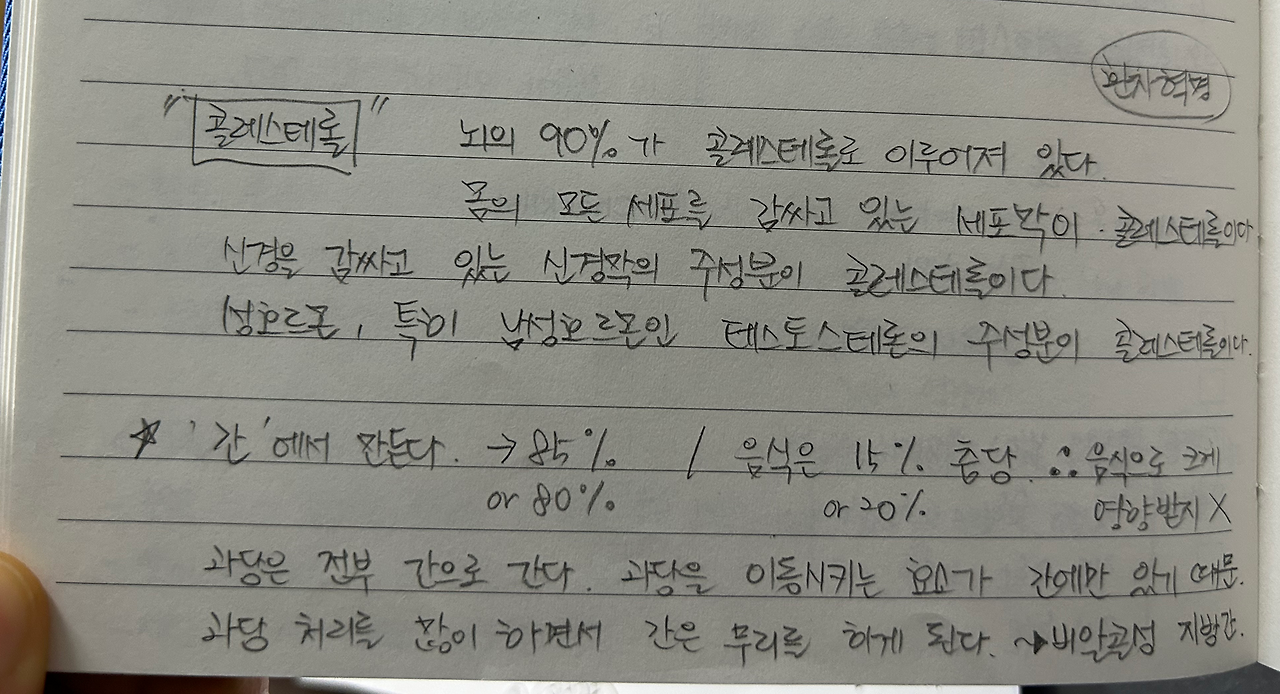 환자혁명
"콜레스테롤" 뇌의 90%가 콜레스테롤로 이루어져 있다.
몸의 모든 세포를 감싸고 있는 세포막이 콜레스테롤이다
신경을 감싸고 있는 신경막의 주성분이 콜레스테롤이다.
성호르몬, 특히 남성호르몬인 테스토스테론의 주성분이 콜레스테롤이다.
☆ '간'에서 만든다. → 85% / 음식은 15% 충당. ∴ 음식으로 크게
or 80% or 20% 영향받지 X
과당은 전부 간으로 간다. 과당을 이동시키는 효소가 간에만 있기 때문.
과당 처리를 많이 하면서 간은 무리를 하게 된다. → 비알콜성 지방간.